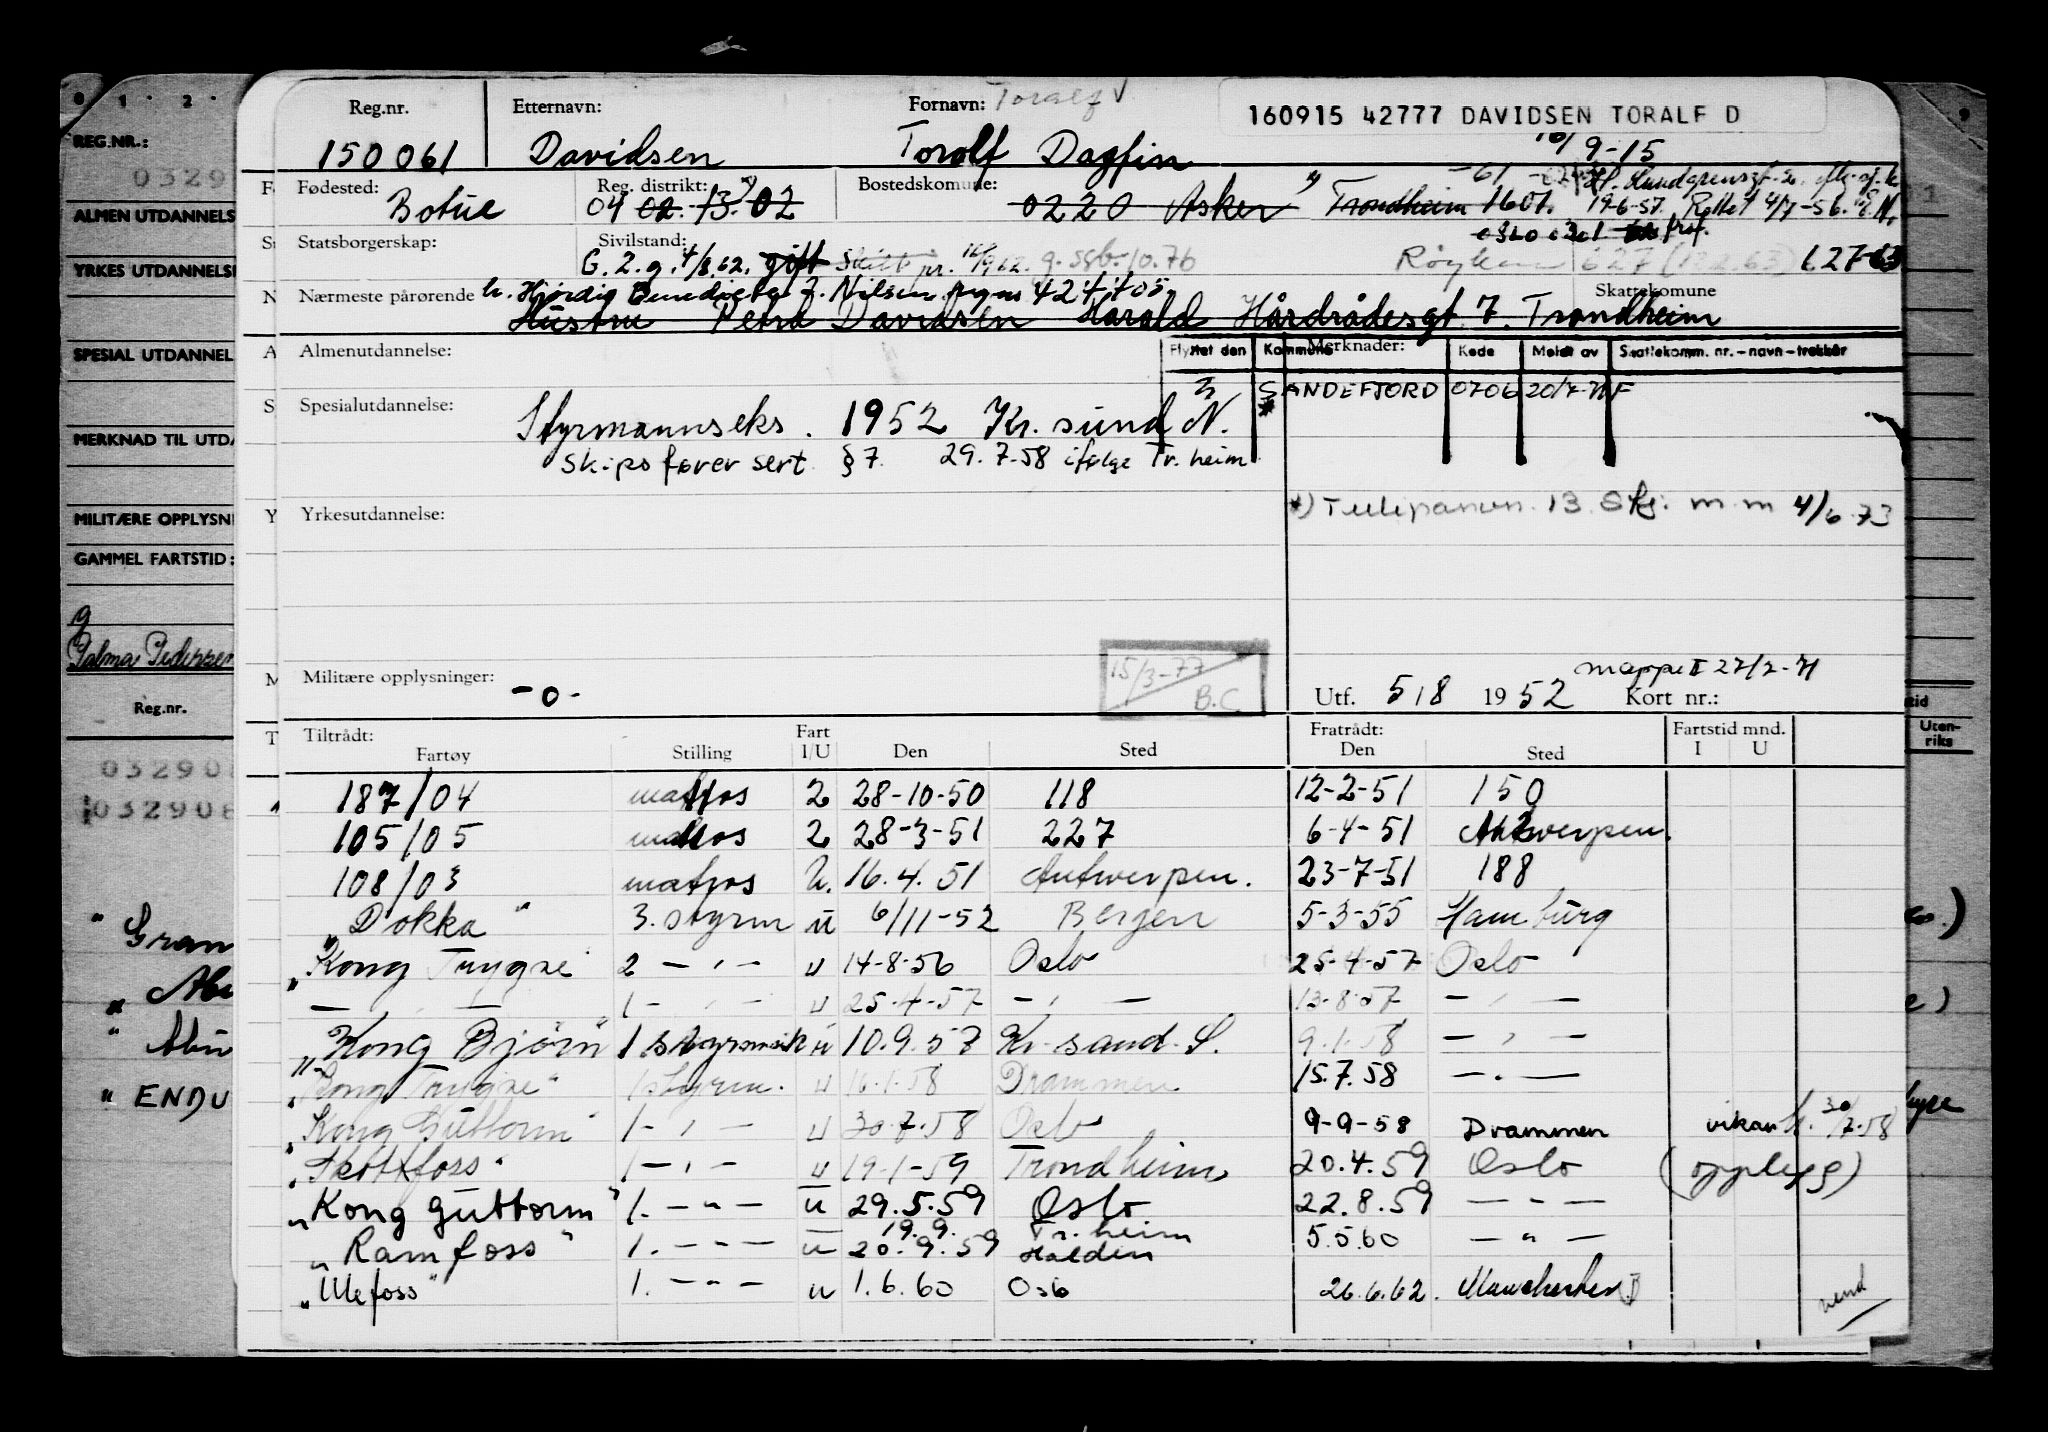 Reg.nr. Etternavn: Fornavn: Toralf
160915 42777 DAVIDSEN TORALF D
150061 Davidsen Toralf Dagfin 16/9-15
Fødested: Reg. distrikt: Bostedskomune:
Botne 04 02. 13. 02 0220 Asker Trondheim 1601. 19-6-57. Rettet 4/7-56.
oslo 0301
Statsborgerskap: Sivilstand:
G. 2. g. 4/8.62. gift Skilt pr. g. ssb. 10.76 Røyken 627 (12.2.63) 627-63
Skattekomune
Nærmeste pårørende h. Hjørdis Benedicte f. Nilsen
Hustru Petra Davidsen Harald Hårdrådesgt. 7. Trondheim
Almenutdannelse: Merknader:
Flyttet den Kommune Kode Meldt av Skattekomm. nr. – navn – trekkår
SANDEFJORD 0706 20/7-71 F
Spesialutdannelse: Styrmannseks. 1952 Kr. sund N.
Skipsfører sert. §7. 29.7.58 ifølge Tr. heim.
*) Tulipanvn. 13. Skj. m.m 4/6.73
Yrkesutdannelse:
15/3-77
B.C
Militære opplysninger: -0-
mappe II 27/2-71
Utf. 5/8 1952 Kort nr.:
Tiltrådt: Fart Fratrådt: Fartstid mnd.
Fartøy Stilling I/U Den Sted Den Sted I U
187/04 matros 2 28-10-50 118 12-2-51 150
105/05 matros 2 28-3-51 227 6-4-51 Antwerpen.
108/03 matros U. 16.4.51 Antwerpen. 23-7-51 188
"Dokka" 3. styrm u 6/11-52 Bergen 5-3-55 Hamburg
"Kong Trygve" 2 — " — u 14-8-56 Oslo 25-4-57 Oslo
— " — 1 - " - u 25-4-57 — " — 13-8-57 — " —
"Kong Bjørn" 1 styrmann u 10.9.57 Kr. sand. S. 9.1.58 — " —
"Kong Trygve" 1 styrm. u 16.1.58 Drammen 15.7.58 — " —
"Kong Guttorm" 1 - " - u 30.7.58 Oslo 9-9-58 Drammen vikar 30/7-58
"Skotfoss" 1 — " — u 19-1-59 Trondheim 20.4.59 Oslo (opplegg)
"Kong Guttorm" 1. — " — u 29.5.59 Oslo 22.8.59 — " —
19.9. Tr. heim
"Ramfoss" 1. — " — u 20.9.59 Halden 5.5.60 — " —
"Ulefoss" 1. — " — u 1.6.60 Oslo 26.6.62. Manchester
vend
0 1 2
REG.NR.:
0329
ALMEN UTDANNELS
YRKES UTDANNELS
SPESIAL UTDANNEL
MERKNAD TIL UTDA
MILITÆRE OPPLYSNI
GAMMEL FARTSTID:
g
Palma Pedersen
Reg.nr.
03290
032908
"Gran
"ENDU
Uten-
riks